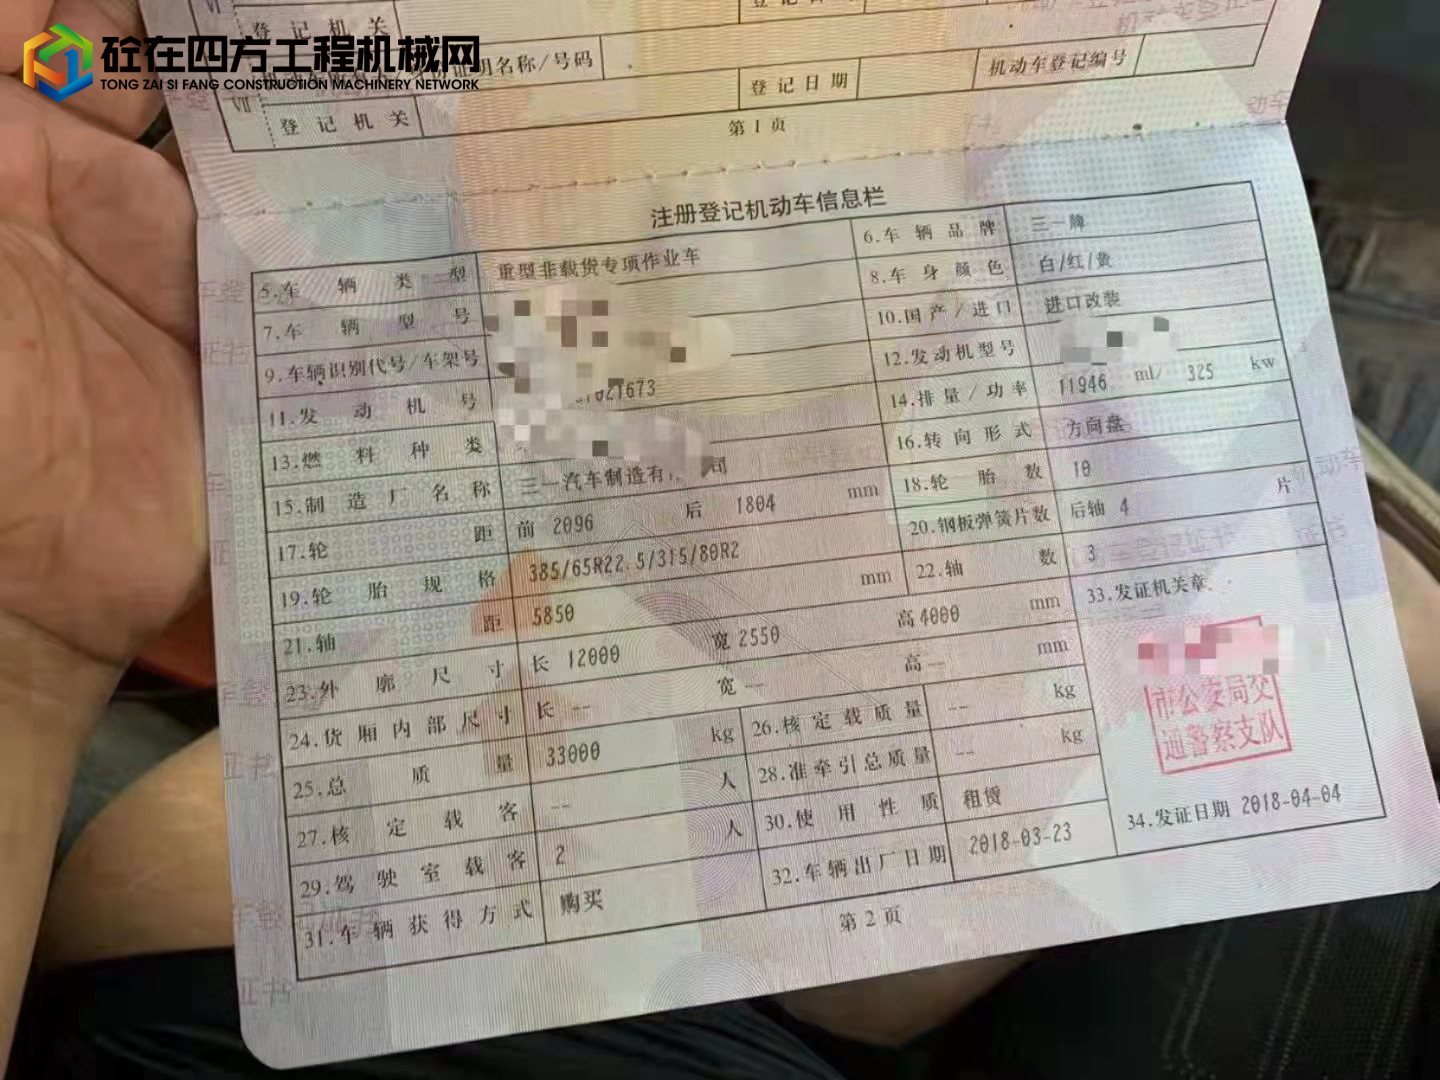 砼在四方工程机械网
TONG ZAI SI FANG CONSTRUCTION MACHINERY NETWORK
登记机关
明名称/号码
登记日期
机动车登记编号
VII
登记机关
第1页
注册登记机动车信息栏
5.车辆类型 重型非载货专项作业车 6.车辆品牌 三一牌
7.车辆型号 8.车身颜色 白/红/黄
9.车辆识别代号/车架号 10.国产/进口 进口改装
11.发动机号 21673 12.发动机型号
13.燃料种类 14.排量/功率 11946 ml/ 325 kw
15.制造厂名称 三一汽车制造有 司 16.转向形式 方向盘
17.轮距 前 2096 后 1804 mm 18.轮胎数 10
19.轮胎规格 385/65R22.5/315/80R2 20.钢板弹簧片数 后轴 4 片
21.轴距 5850 mm 22.轴数 3
23.外廓尺寸 长 12000 宽 2550 高 4000 mm 33.发证机关章
24.货厢内部尺寸 长 -- 宽 -- 高 -- mm
25.总质量 33000 kg 26.核定载质量 -- kg
27.核定载客 -- 人 28.准牵引总质量 -- kg
29.驾驶室载客 2 人 30.使用性质 租赁
31.车辆获得方式 购买 32.车辆出厂日期 2018-03-23
市公安局交
通警察支队
34.发证日期 2018-04-04
第2页